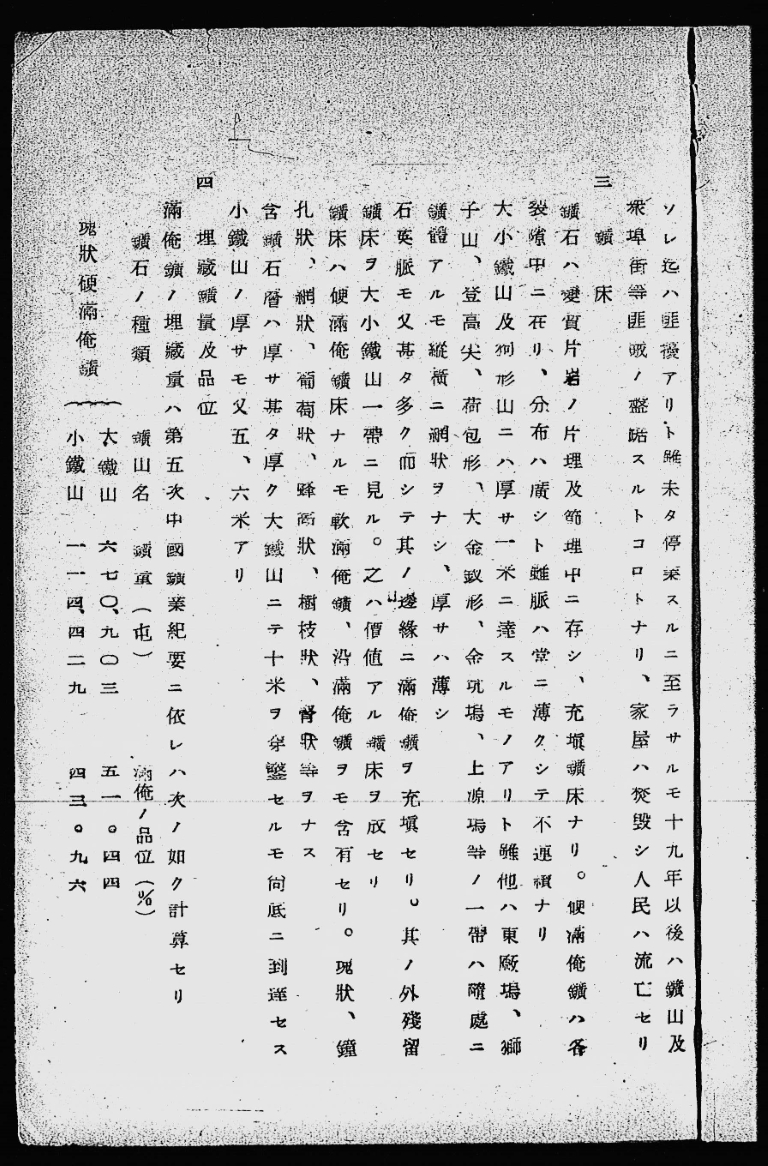 ソレ迄ハ匪擾アリト雖未タ停業スルニ至ラサルモ十九年以後ハ鑛山及
衆埠街等匪賊ノ盤踞スルトコロトナリ、家屋ハ焚毀シ人民ハ流亡セリ
三　鑛　床
鑛石ハ變質片岩ノ片理及節理中ニ存シ、充塡鑛床ナリ。硬滿俺鑛ハ各
裂隙中ニ在リ、分布ハ廣シト雖脈ハ常ニ薄クシテ不連續ナリ
大小鐵山及狗形山ニハ厚サ一米ニ達スルモノアリト雖他ハ東廠塢、獅
子山、登高尖、荷包形、大金釵形、金坑塢、上源塢等ノ一帶ハ隨處ニ
鑛體アルモ縱橫ニ網狀ヲナシ、厚サハ薄シ
石英脈モ又甚タ多ク而シテ其ノ邊緣ニ滿俺鑛ヲ充塡セリ。其ノ外殘留
鑛床ヲ大小鐵山一帶ニ見ル。之ハ價値アル鑛床ヲ成セリ
鑛床ハ硬滿俺鑛床ナルモ軟滿俺鑛、沼滿俺鑛ヲモ含有セリ。塊狀、鐘
孔狀、網狀、葡萄狀、蜂窩狀、樹枝狀、腎狀等ヲナス
含鑛石層ハ厚サ甚タ厚ク大鐵山ニテ十米ヲ穿鑿セルモ尙底ニ到達セス
小鐵山ノ厚サモ又五、六米アリ
四　埋藏鑛量及品位
滿俺鑛ノ埋藏量ハ第五次中國鑛業紀要ニ依レハ次ノ如ク計算セリ
鑛石ノ種類　鑛山名　鑛量(屯)　滿俺ノ品位(%)
塊狀硬滿俺鑛　大鐵山　六七〇、九〇三　五一。四四
小鐵山　一一四、四二九　四三。九六